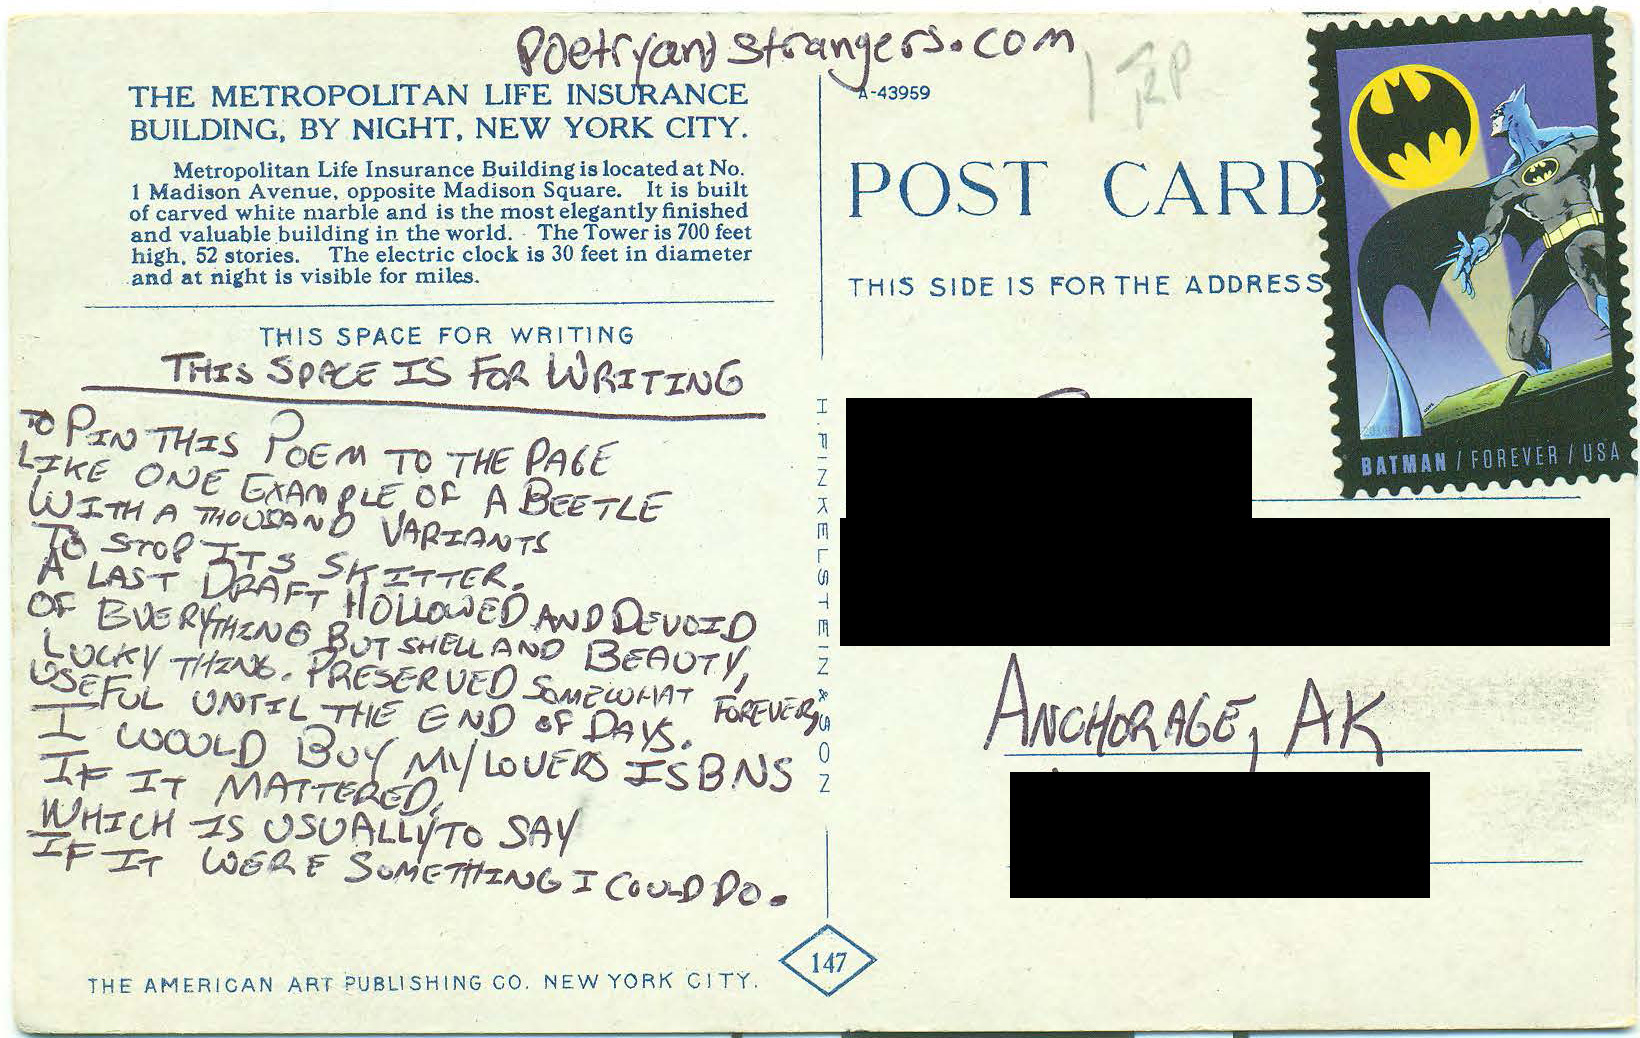 Poetryandstrangers.com
THE METROPOLITAN LIFE INSURANCE
BUILDING, BY NIGHT, NEW YORK CITY.
Metropolitan Life Insurance Building is located at No.
1 Madison Avenue, opposite Madison Square. It is built
of carved white marble and is the most elegantly finished
and valuable building in the world. The Tower is 700 feet
high, 52 stories. The electric clock is 30 feet in diameter
and at night is visible for miles.
THIS SPACE FOR WRITING
THIS SPACE IS FOR WRITING
TO PIN THIS POEM TO THE PAGE
LIKE ONE EXAMPLE OF A BEETLE
WITH A THOUSAND VARIANTS
TO STOP ITS SKITTER.
A LAST DRAFT HOLLOWED AND DEVOID
OF EVERYTHING BUT SHELL AND BEAUTY,
LUCKY THING. PRESERVED SOMEWHAT FOREVER,
USEFUL UNTIL THE END OF DAYS.
I WOULD BUY MY LOVERS ISBNS
IF IT MATTERED,
WHICH IS USUALLY TO SAY
IF IT WERE SOMETHING I COULD DO.
THE AMERICAN ART PUBLISHING CO. NEW YORK CITY.
H. FINKELSTEIN & SON
147
A-43959
POST CARD
THIS SIDE IS FOR THE ADDRESS
BATMAN / FOREVER / USA
ANCHORAGE, AK